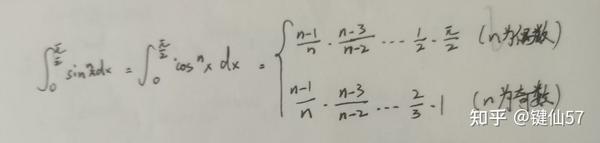 ∫₀^{π/2} sinⁿxdx = ∫₀^{π/2} cosⁿx dx = { (n-1)/n · (n-3)/(n-2) ··· 1/2 · π/2 (n为偶数)
(n-1)/n · (n-3)/(n-2) ··· 2/3 · 1 (n为奇数)
知乎 @键仙57